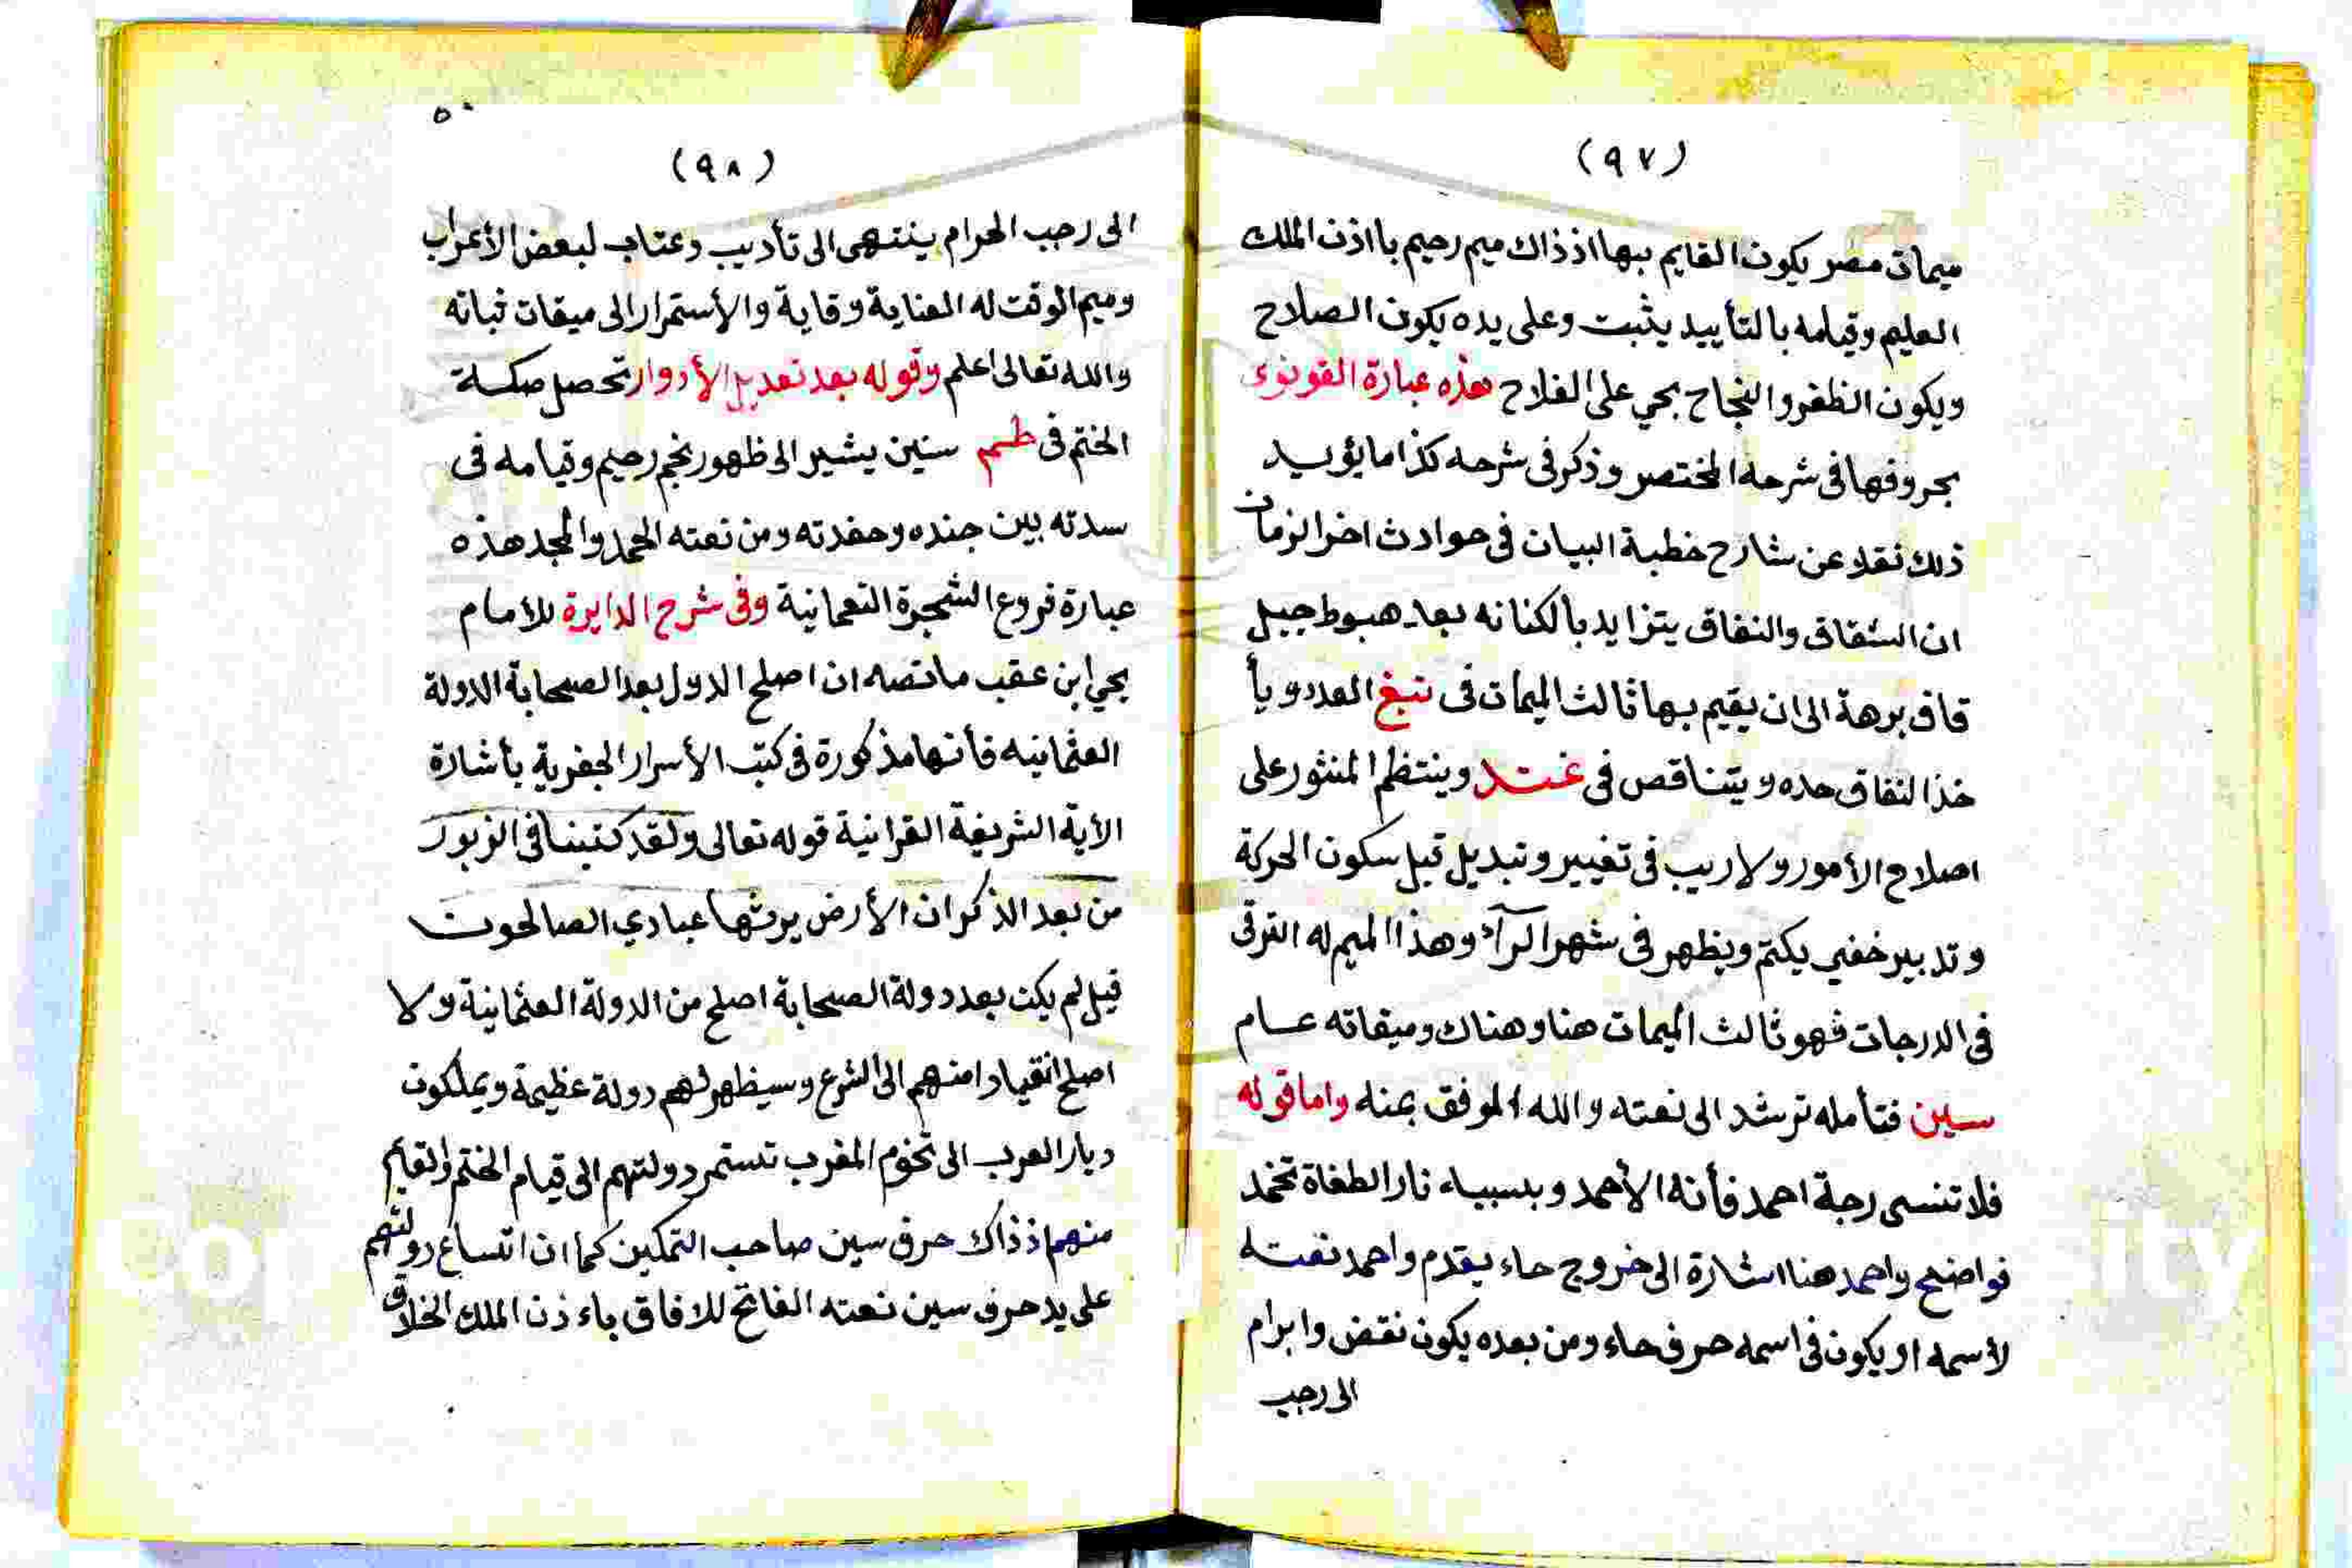 (٩٧)
ميمات مصر يكون القايم بها اذ ذاك ميم رحيم با اذن الملك
العليم وقيامه بالتأييد يثبت وعلى يده يكون الصلاح
ويكون الظفر والنجاح بحي على الفلاح هذه عبارة القونوى
بحروفها فى شرحه المختصر وذكر فى شرحه كذا ما يؤيد
ذلك نقلا عن شارح خطبة البيان فى حوادث اخر الزمان
ان الشقاق والنفاق يتزايد بالكنانه بعد هبوط جبل
قاف برهة الى ان يقيم بها ثالث الميمات فى نبغ العدد ويأ
خذ النفاق حده ويتناقص فى غتد وينتظم المنثور على
اصلاح الأمور ولا ريب فى تغيير وتبديل قبل سكون الحركة
وتدبير خفي يكتم ويظهر فى شهر الرآء وهذا الميم له الترقى
فى الدرجات فهو ثالث الميمات هنا وهناك وميقاته عام
سين فتأمله ترشد الى نعته والله الموفق بمنه واما قوله
فلا تنسى رجة احمد فأنه الأحمد وبسببه نار الطغاة تخمد
فواضح واحمد هنا اشارة الى خروج حاء يقدم واحمد نعته
لأسمه او يكون فى اسمه حرف حاء ومن بعده يكون نقض وابرام
الى رجب
٥٠
(٩٨)
الى رجب الحرام ينتهى الى تأديب وعتاب لبعض الأعراب
وميم الوقت له العناية وقاية والأستمرار الى ميقات ثباته
والله تعالى اعلم وقوله بعد تعديل الأدوار تحصل صكة
الختم فى طم سنين يشير الى ظهور نجم رحيم وقيامه فى
سدته بين جنده وحفدته ومن نعته الحمد والمجد هذه
عبارة فروع الشجرة النعمانية وفى شرح الدايرة للأمام
يحي ابن عقب ما نصه ان اصلح الدول بعد الصحابة الدولة
العثمانيه فأنها مذكورة فى كتب الأسرار الجفرية بأشارة
الأية الشريفة القرانية قوله تعالى ولقد كتبنا فى الزبور
من بعد الذكر ان الأرض يرثها عبادي الصالحون
قيل لم يكن بعد دولة الصحابة اصلح من الدولة العثمانية ولا
اصلح انقيادا منهم الى الشرع وسيظهر لهم دولة عظيمة ويملكون
ديار العرب الى تخوم المغرب تستمر دولتهم الى قيام الختم والقايم
منهم اذ ذاك حرف سين صاحب التمكين كما ان اتساع دولتهم
على يد حرف سين نعته الفاتح للافاق باء ذن الملك الخلاق